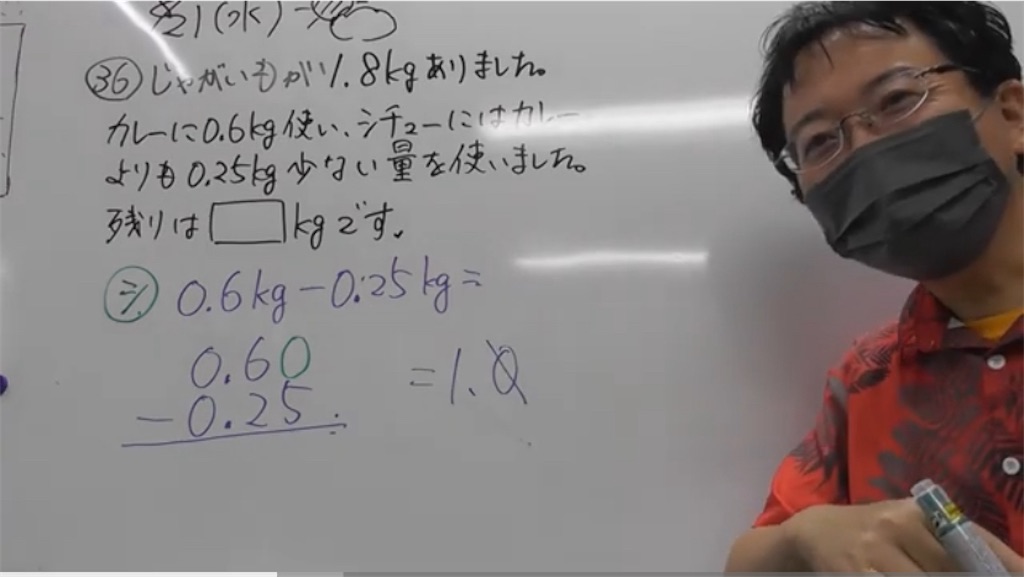 21(水)
㊱ じゃがいもが1.8kgありました。
カレーに0.6kg使い、シチューにはカレー
よりも0.25kg少ない量を使いました。
残りは□kgです。
シ 0.6kg-0.25kg=
0.60
-0.25
=1.0